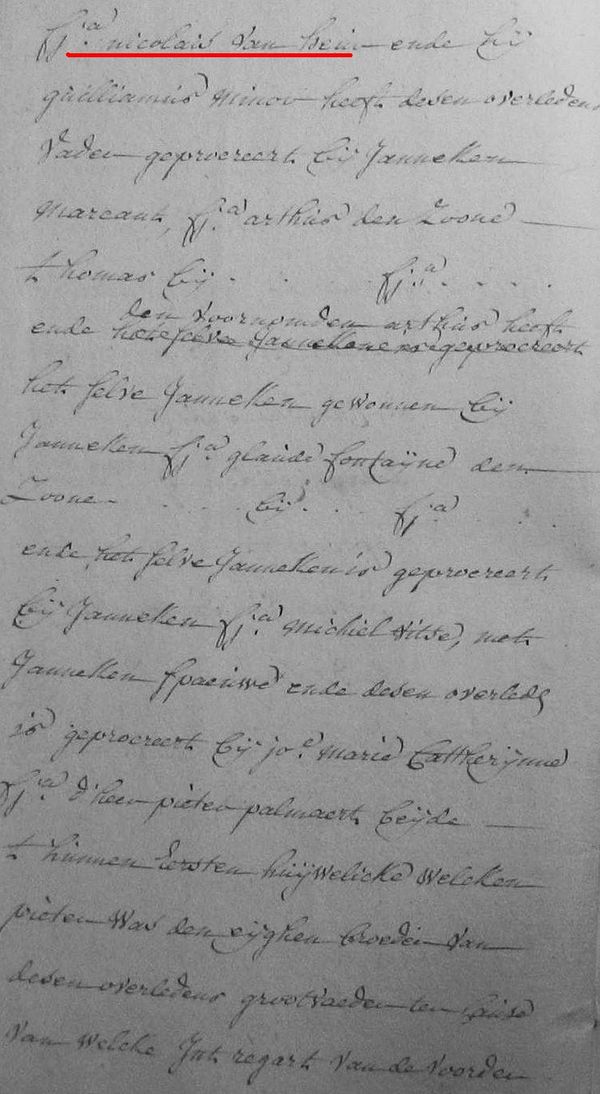 fjᵃ. nicolais van hein ende bij
guilliamus minor heeft desen overledens
vader geprocreert bij Janneken
marcant, fjᵃ. arthus den zoone
thomas bij . . . fjᵃ. . . . .
den voornomden arthus heeft
ende het selve Janneken geprocreert
het selve Janneken gewonnen bij
Janneken fjᵃ. glaude fontayne den
zoone . . bij . . fjᵃ. . . .
ende het selve Janneken is geprocreert
bij Janneken fjᵃ. michiel witse, met
Janneken spaeuwe ende desen overleds
is geprocreert bij joᵉ. marie Catherijnne
fjᵃ. d'heer pieter palmaert beijde
t hunnen Eersten huijwelicke welcken
pieter was den eijghen broeder van
desen overledens grootvaeder ten huise
van welcke Int regart van de voorder